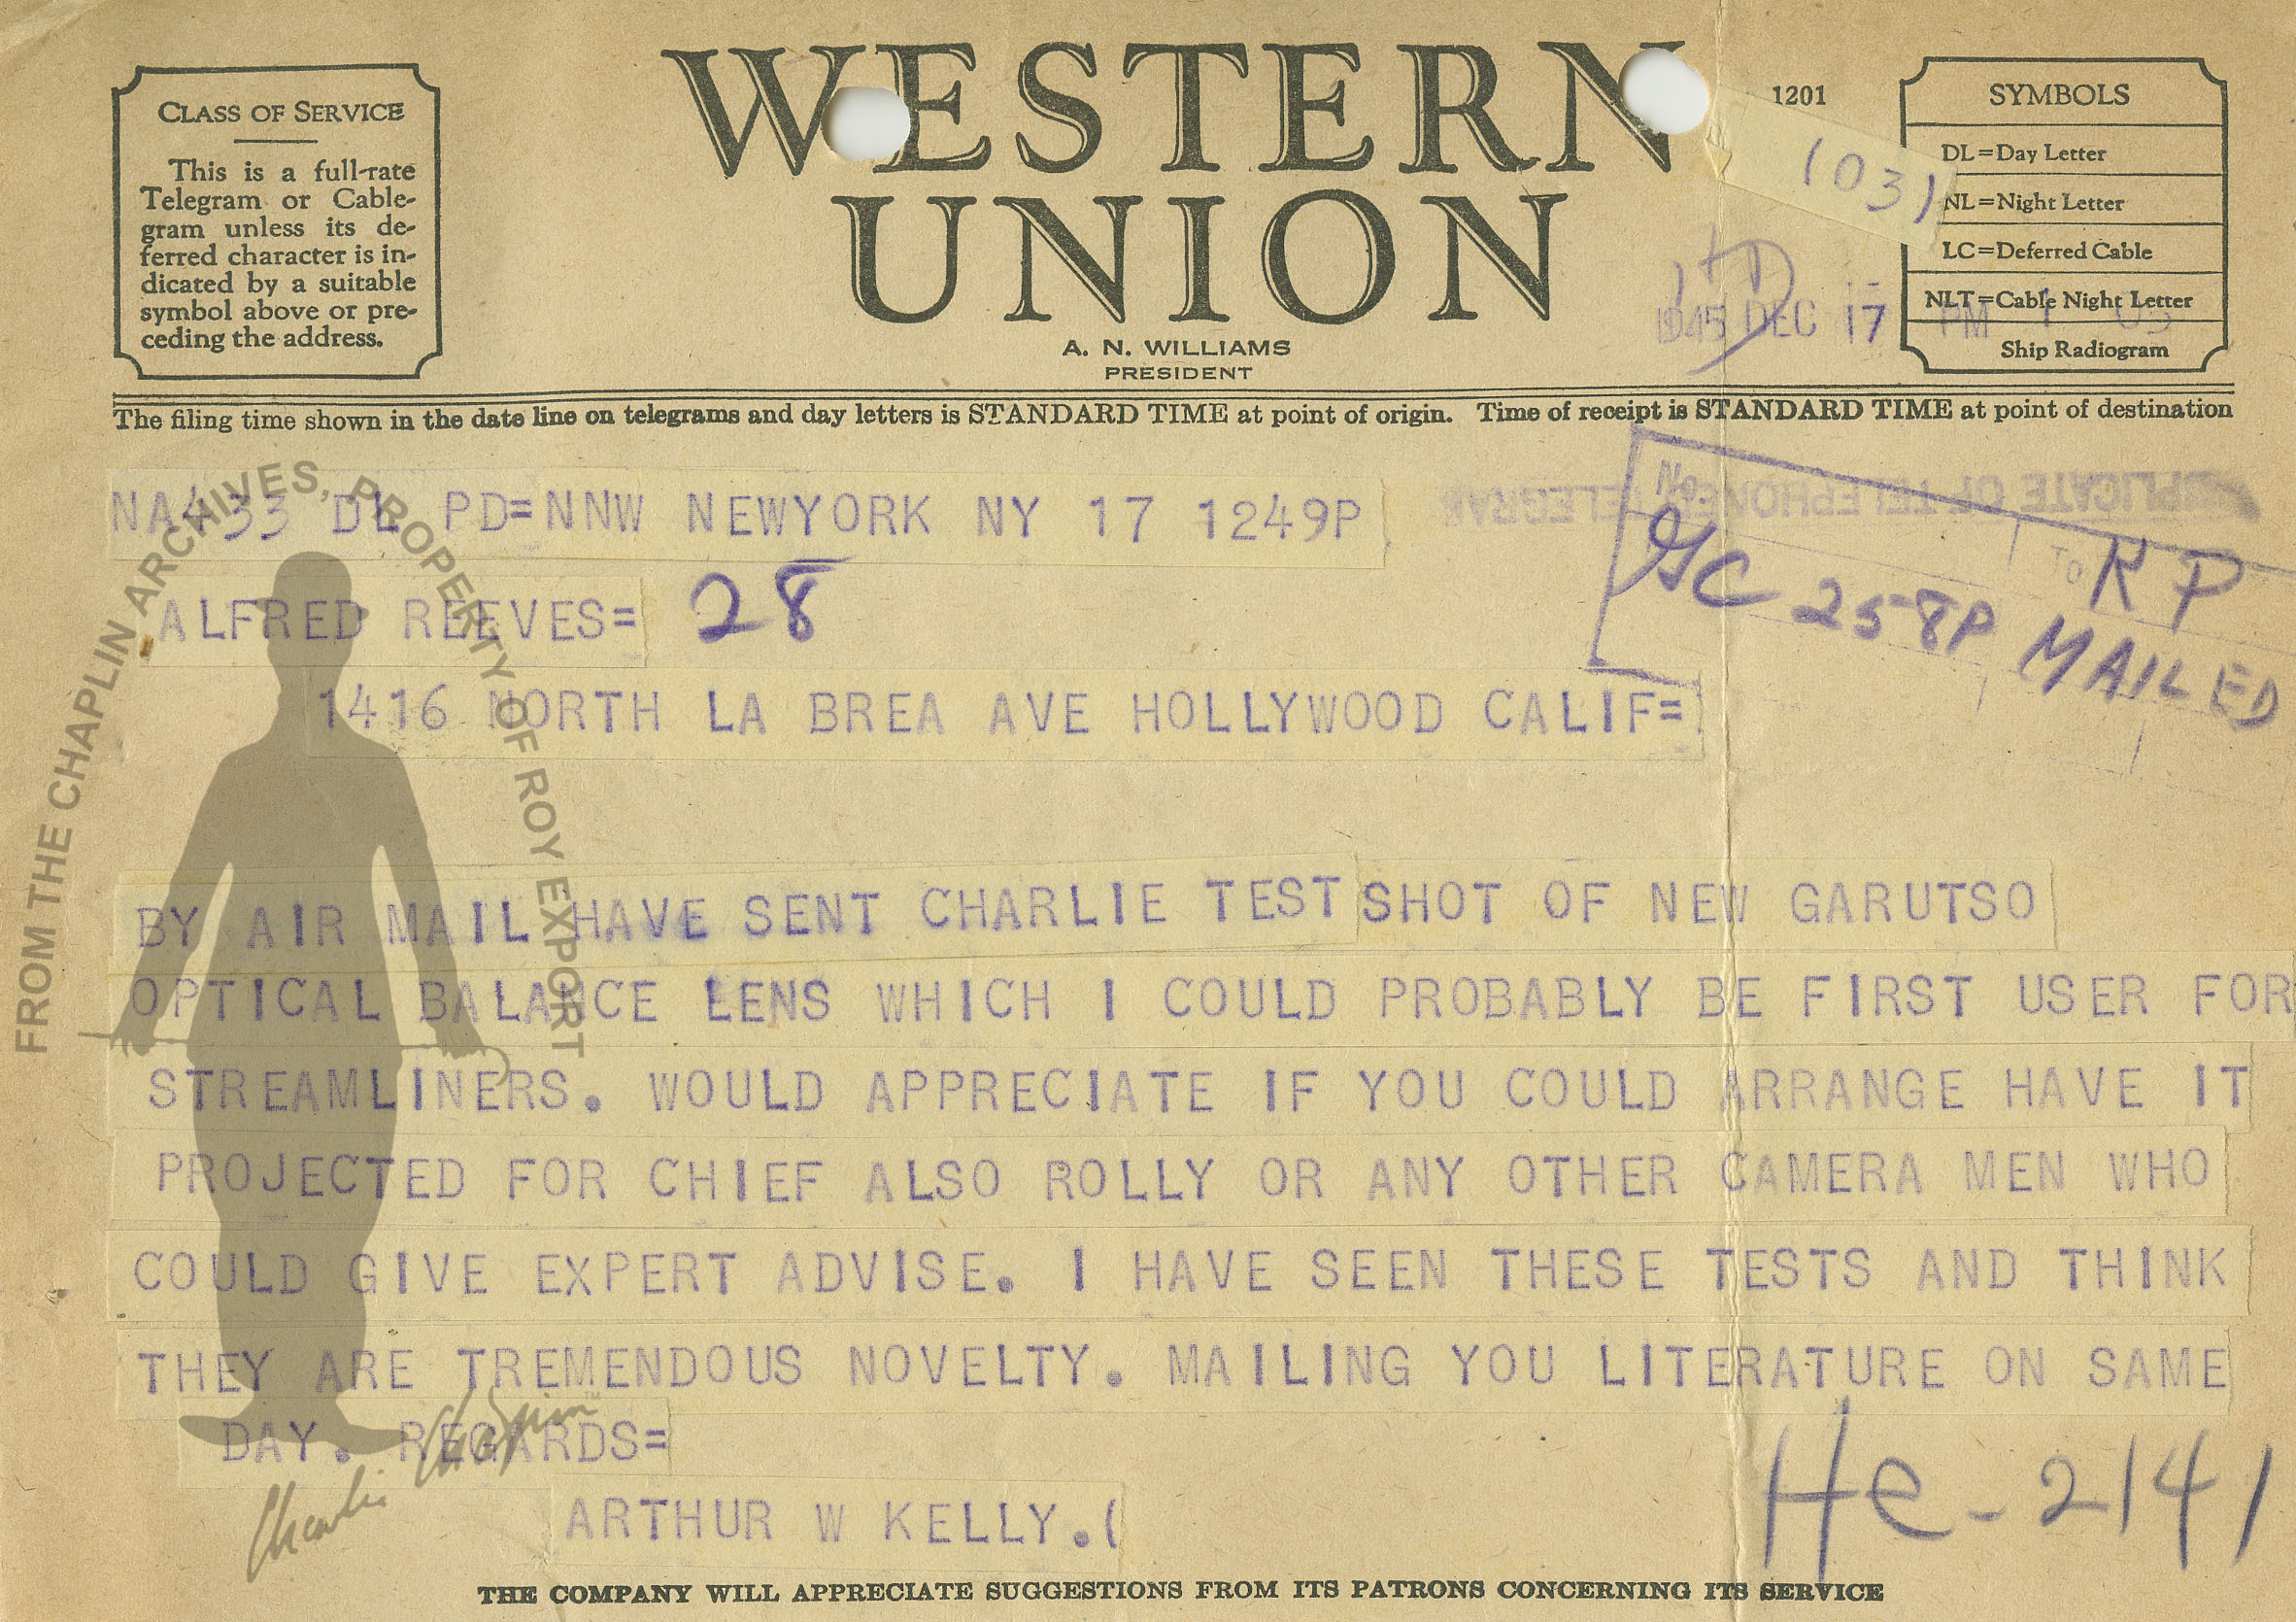 CLASS OF SERVICE
This is a full-rate
Telegram or Cable-
gram unless its de-
ferred character is in-
dicated by a suitable
symbol above or pre-
ceding the address.
WESTERN
UNION
A. N. WILLIAMS
PRESIDENT
1201
(03)
1945 DEC 17 PM 1 03
SYMBOLS
DL=Day Letter
NL=Night Letter
LC=Deferred Cable
NLT=Cable Night Letter
Ship Radiogram
The filing time shown in the date line on telegrams and day letters is STANDARD TIME at point of origin. Time of receipt is STANDARD TIME at point of destination
NA433 DL PD=NNW NEWYORK NY 17 1249P
DUPLICATE OF TELEPHONED TELEGRAM
No.
To RP
GC 258P MAILED
ALFRED REEVES= 28
1416 NORTH LA BREA AVE HOLLYWOOD CALIF=
BY AIR MAIL HAVE SENT CHARLIE TEST SHOT OF NEW GARUTSO
OPTICAL BALANCE LENS WHICH I COULD PROBABLY BE FIRST USER FOR
STREAMLINERS. WOULD APPRECIATE IF YOU COULD ARRANGE HAVE IT
PROJECTED FOR CHIEF ALSO ROLLY OR ANY OTHER CAMERA MEN WHO
COULD GIVE EXPERT ADVISE. I HAVE SEEN THESE TESTS AND THINK
THEY ARE TREMENDOUS NOVELTY. MAILING YOU LITERATURE ON SAME
DAY. REGARDS=
ARTHUR W KELLY.(
He-2141
THE COMPANY WILL APPRECIATE SUGGESTIONS FROM ITS PATRONS CONCERNING ITS SERVICE
FROM THE CHAPLIN ARCHIVES, PROPERTY OF ROY EXPORT
Charlie Chaplin™